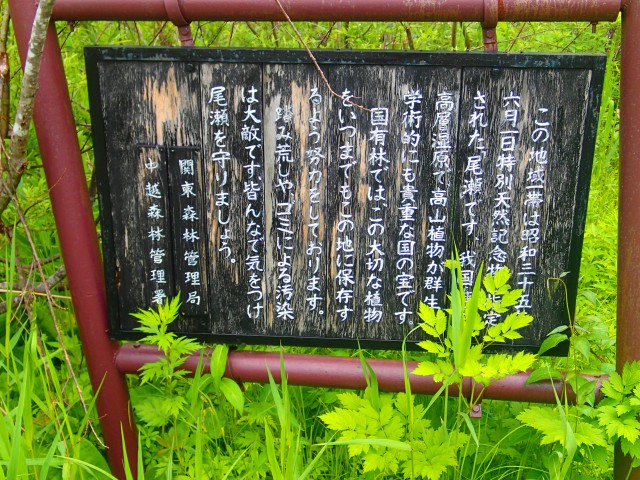 この地域一帯は昭和三十五
六月一日特別天然記念物
された尾瀬です。我国
高層湿原で、高山植物が群生
学術的にも貴重な国の宝です。
国有林では、この大切な植物
をいつまでもこの地に保存す
るよう努力をしております。
踏み荒しや、ゴミによる汚染
は大敵です皆んなで気をつけ
尾瀬を守りましょう。
関東森林管理局
中越森林管理署